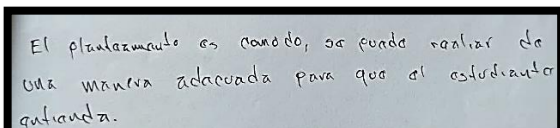 El planteamiento es comodo, se puede realizar de
una manera adecuada para que el estudiante
entienda.